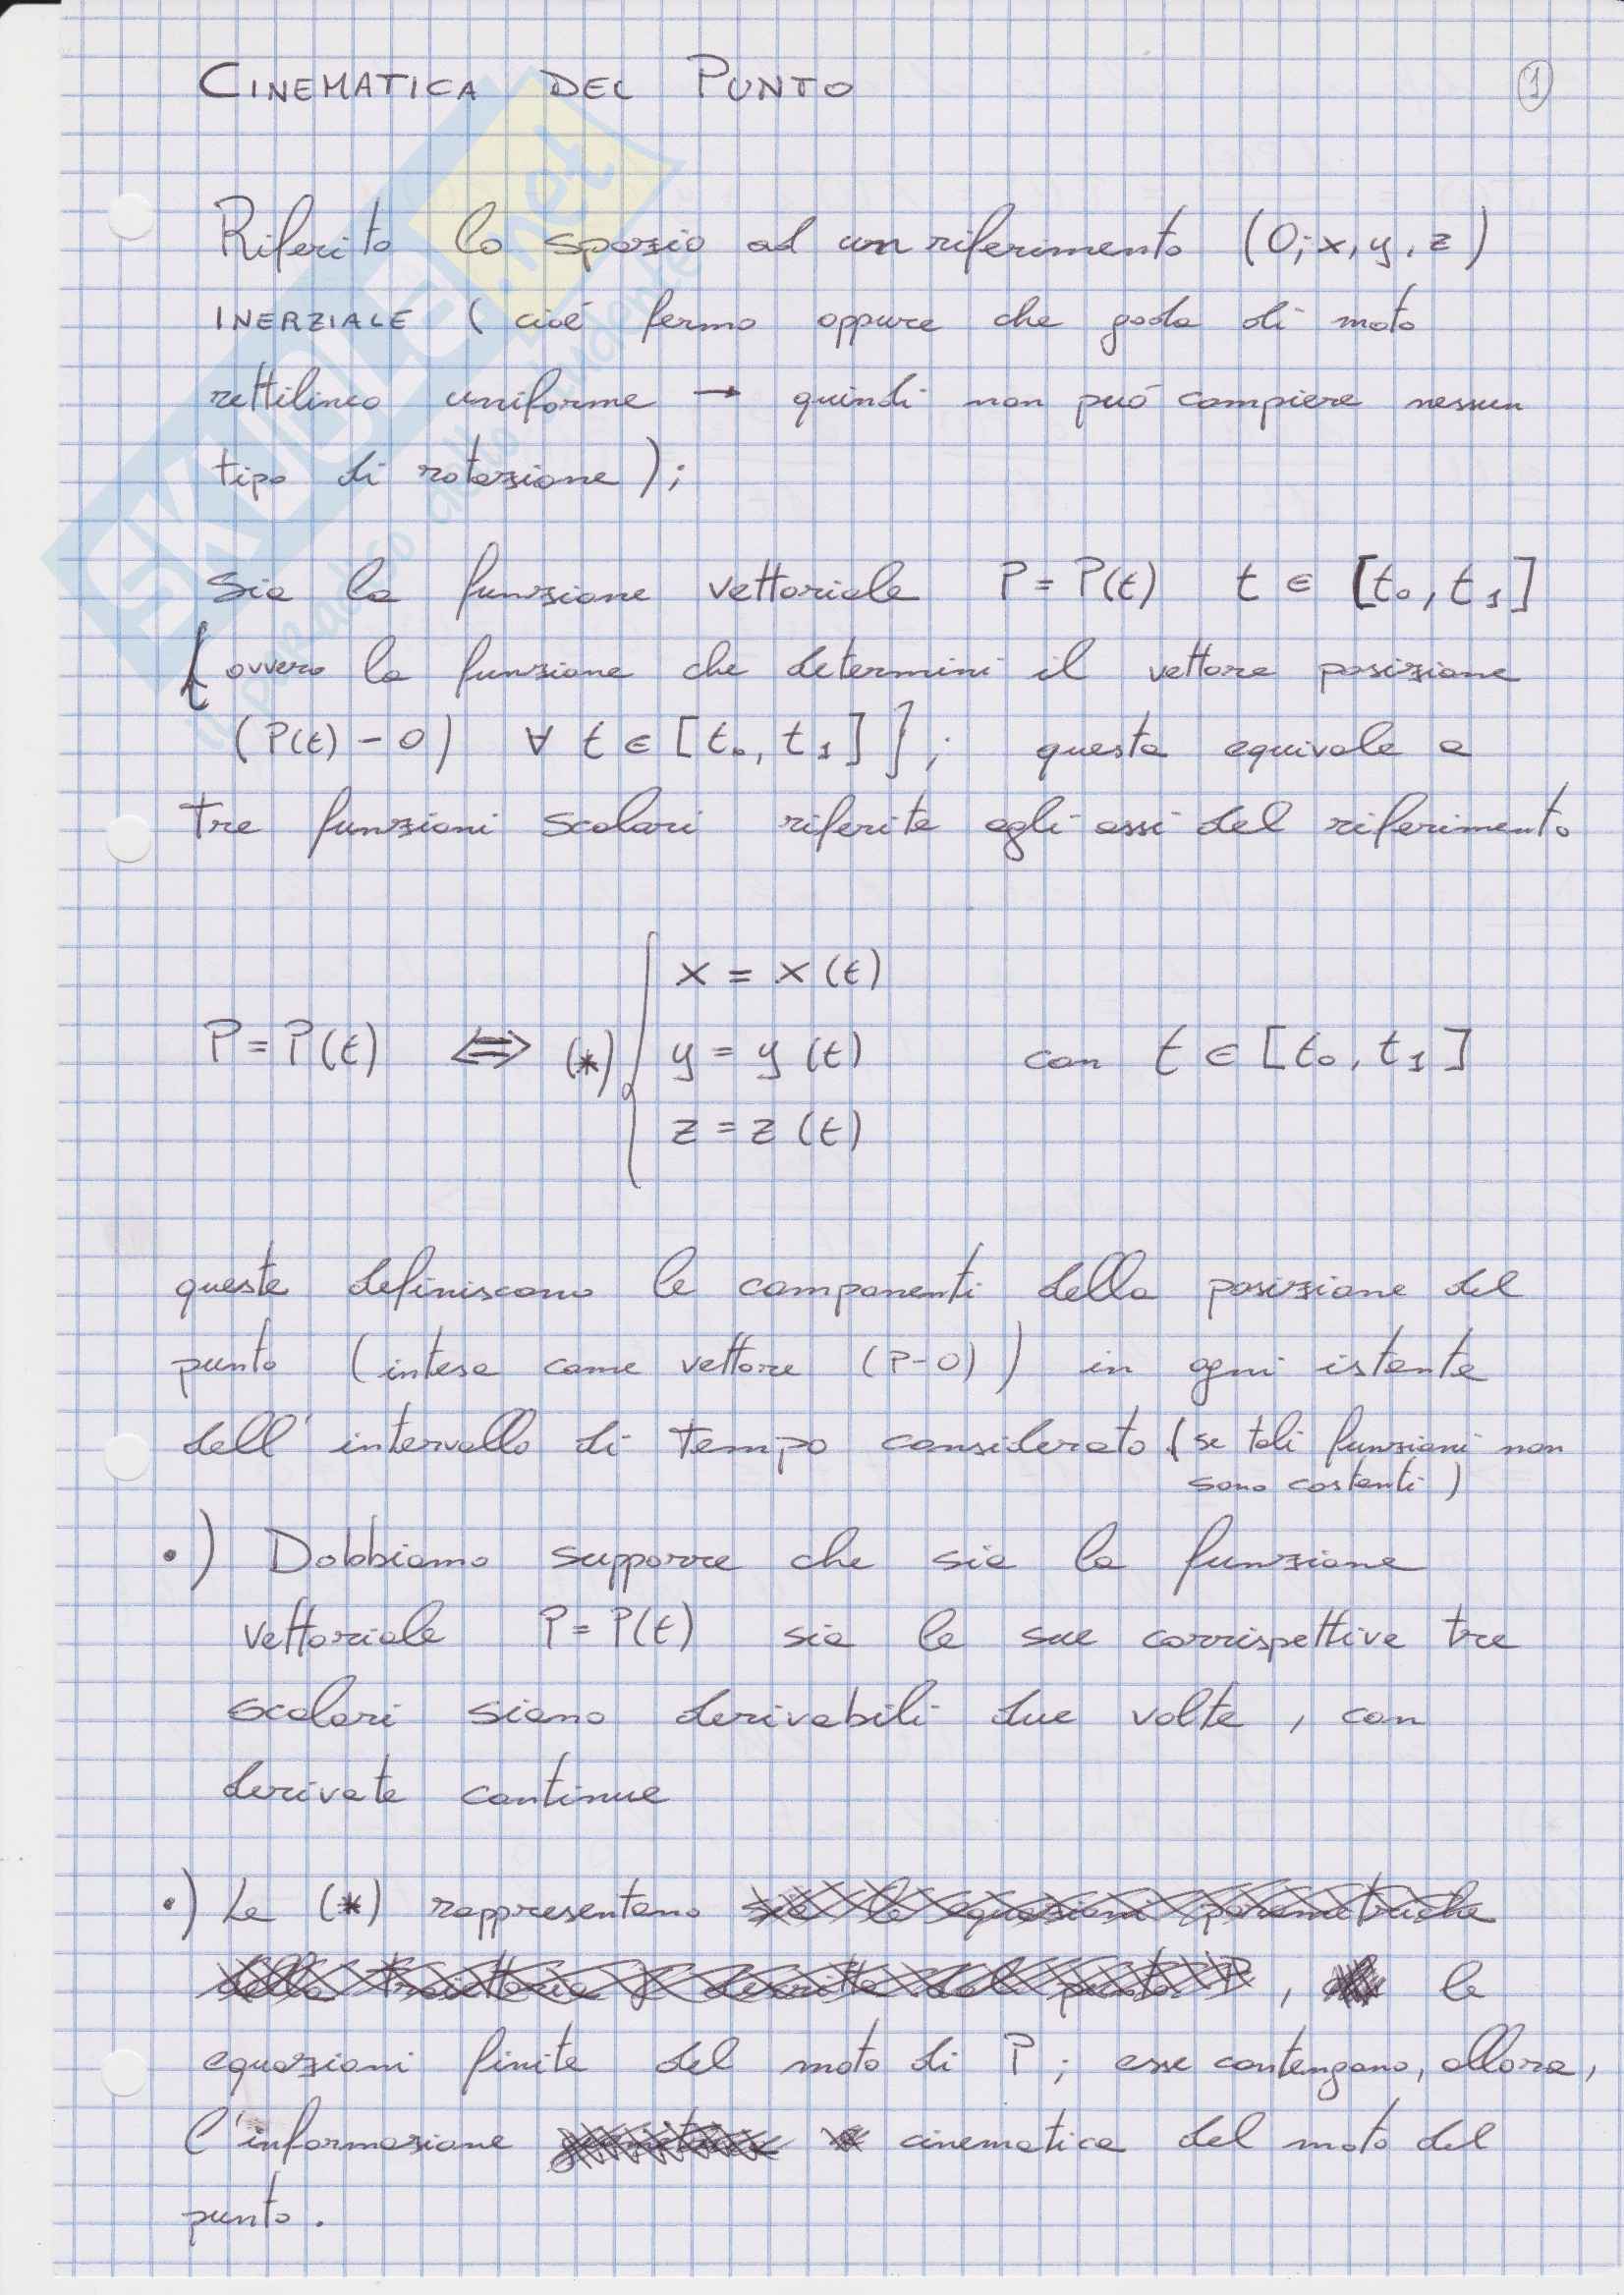 CINEMATICA DEL PUNTO
1
Riferito lo spazio ad un riferimento (O; x, y, z)
INERZIALE ( cioé fermo oppure che goda di moto
rettilineo uniforme → quindi non puó compiere nessun
tipo di rotazione );
Sia la funzione vettoriale P = P(t) t ∈ [t₀, t₁]
{ ovvero la funzione che determini il vettore posizione
(P(t) - O) ∀ t ∈ [t₀, t₁] } ; questa equivale a
tre funzioni scalari riferite agli assi del riferimento
x = x(t)
P = P(t) ⇔ (*) { y = y(t) con t ∈ [t₀, t₁]
z = z(t)
queste definiscono le componenti della posizione del
punto (intesa come vettore (P-O)) in ogni istante
dell' intervallo di tempo considerato ( se tali funzioni non
sono costanti )
•) Dobbiamo supporre che sia la funzione
vettoriale P = P(t) sia le sue corrispettive tre
scalari siano derivabili due volte , con
derivate continue
•) Le (*) rappresentano sia le equazioni parametriche
della traiettoria γ descritta dal punto P , le
equazioni finite del moto di P ; esse contengono, allora,
l'informazione geometrica cinematica del moto del
punto .
SKUOLA.net